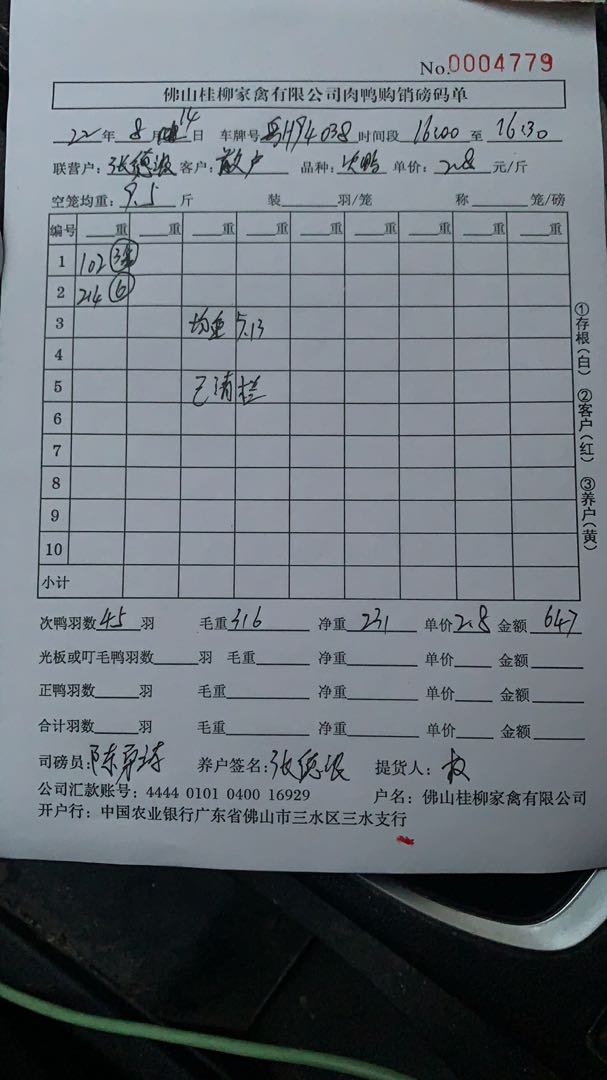 No.0004779
佛山桂柳家禽有限公司肉鸭购销磅码单
22年 8月14日 车牌号 粤H94038 时间段 16:00 至 16:30
联营户： 客户：散户 品种：次鸭 单价：2.8 元/斤
空笼均重：9.5 斤 装 羽/笼 称 笼/磅
编号 重 重 重 重 重 重 重 重
1 102
2 214 6
3 均重 5.13
4
5 已清栏
6
7
8
9
10
小计
①存根（白） ②客户（红） ③养户（黄）
次鸭羽数 45 羽 毛重 316 净重 231 单价 2.8 金额 647
光板或叮毛鸭羽数 羽 毛重 净重 单价 金额
正鸭羽数 羽 毛重 净重 单价 金额
合计羽数 羽 毛重 净重 单价 金额
司磅员： 养户签名： 提货人：
公司汇款账号：4444 0101 0400 16929 户名：佛山桂柳家禽有限公司
开户行：中国农业银行广东省佛山市三水区三水支行